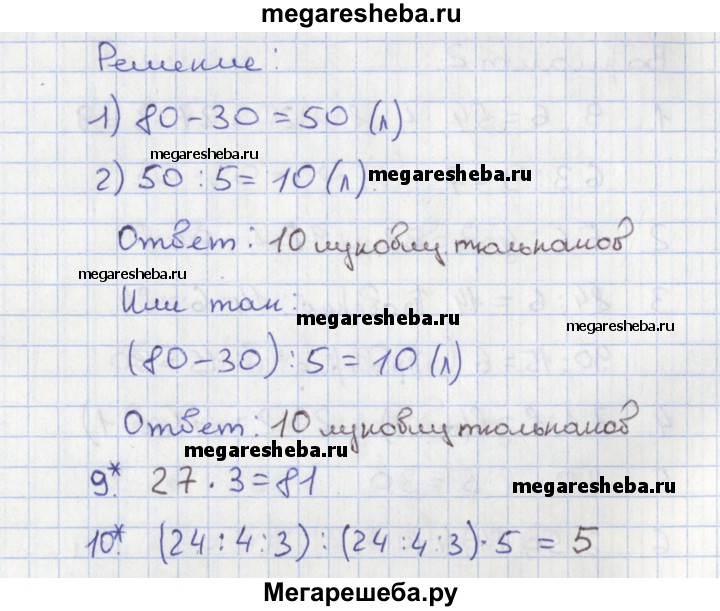 megaresheba.ru
Решение:
1) 80-30=50 (л)
megaresheba.ru
2) 50:5= 10 (л).
megaresheba.ru
Ответ: 10 луковиц тюльпанов
megaresheba.ru
Или так:
megaresheba.ru
megaresheba.ru
(80-30):5=10 (л)
Ответ: 10 луковиц тюльпанов
megaresheba.ru
9*. 27·3=81
megaresheba.ru
10*. (24:4:3):(24:4:3)·5 = 5
Мегарешеба.ру